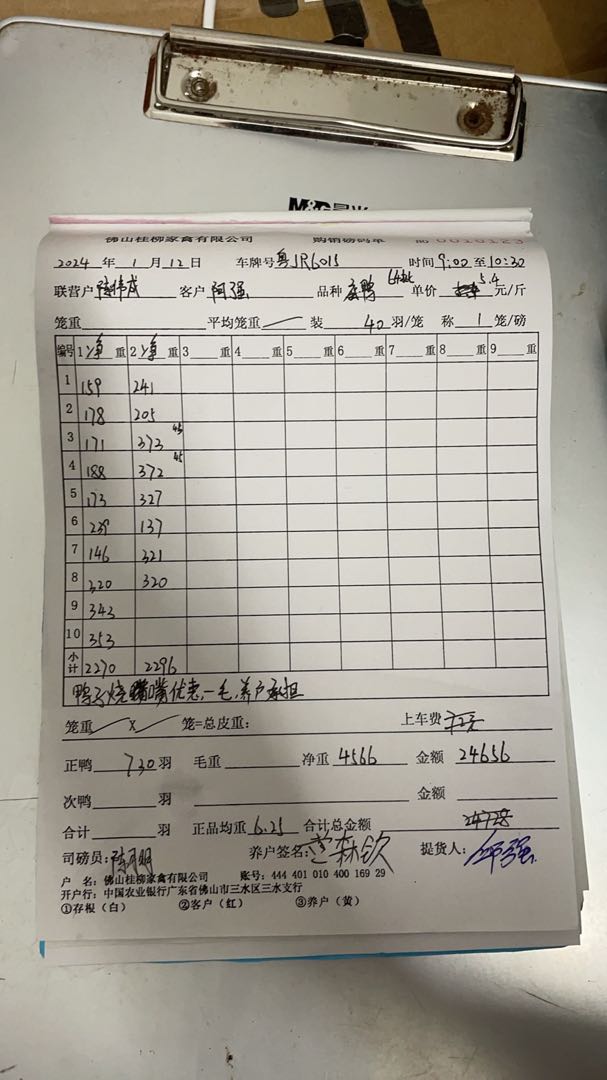 M&G晨光
佛山桂柳家禽有限公司 购销磅码单 No 0010123
2024 年 1 月 12 日 车牌号 粤JR6015 时间 9:00 至 10:30
联营户 客户 阿强 品种 单价 5.4 元/斤
笼重 平均笼重 装 40 羽/笼 称 1 笼/磅
编号 1 净 重 2 净 重 3 重 4 重 5 重 6 重 7 重 8 重 9 重
1 159 241
2 178 205
3 171 373 45
4 188 372 45
5 173 327
6 239 137
7 146 321
8 320 320
9 343
10 353
小计 2270 2296
鸭子烧嘴优惠一毛,养户承担
笼重 X 笼=总皮重: 上车费 72元
正鸭 730 羽 毛重 净重 4566 金额 24656
次鸭 羽 金额
合计 羽 正品均重 6.25 合计总金额 24728
司磅员: 养户签名: 提货人: 邱强
户 名:佛山桂柳家禽有限公司 账号:444 401 010 400 169 29
开户行:中国农业银行广东省佛山市三水区三水支行
①存根(白) ②客户(红) ③养户(黄)